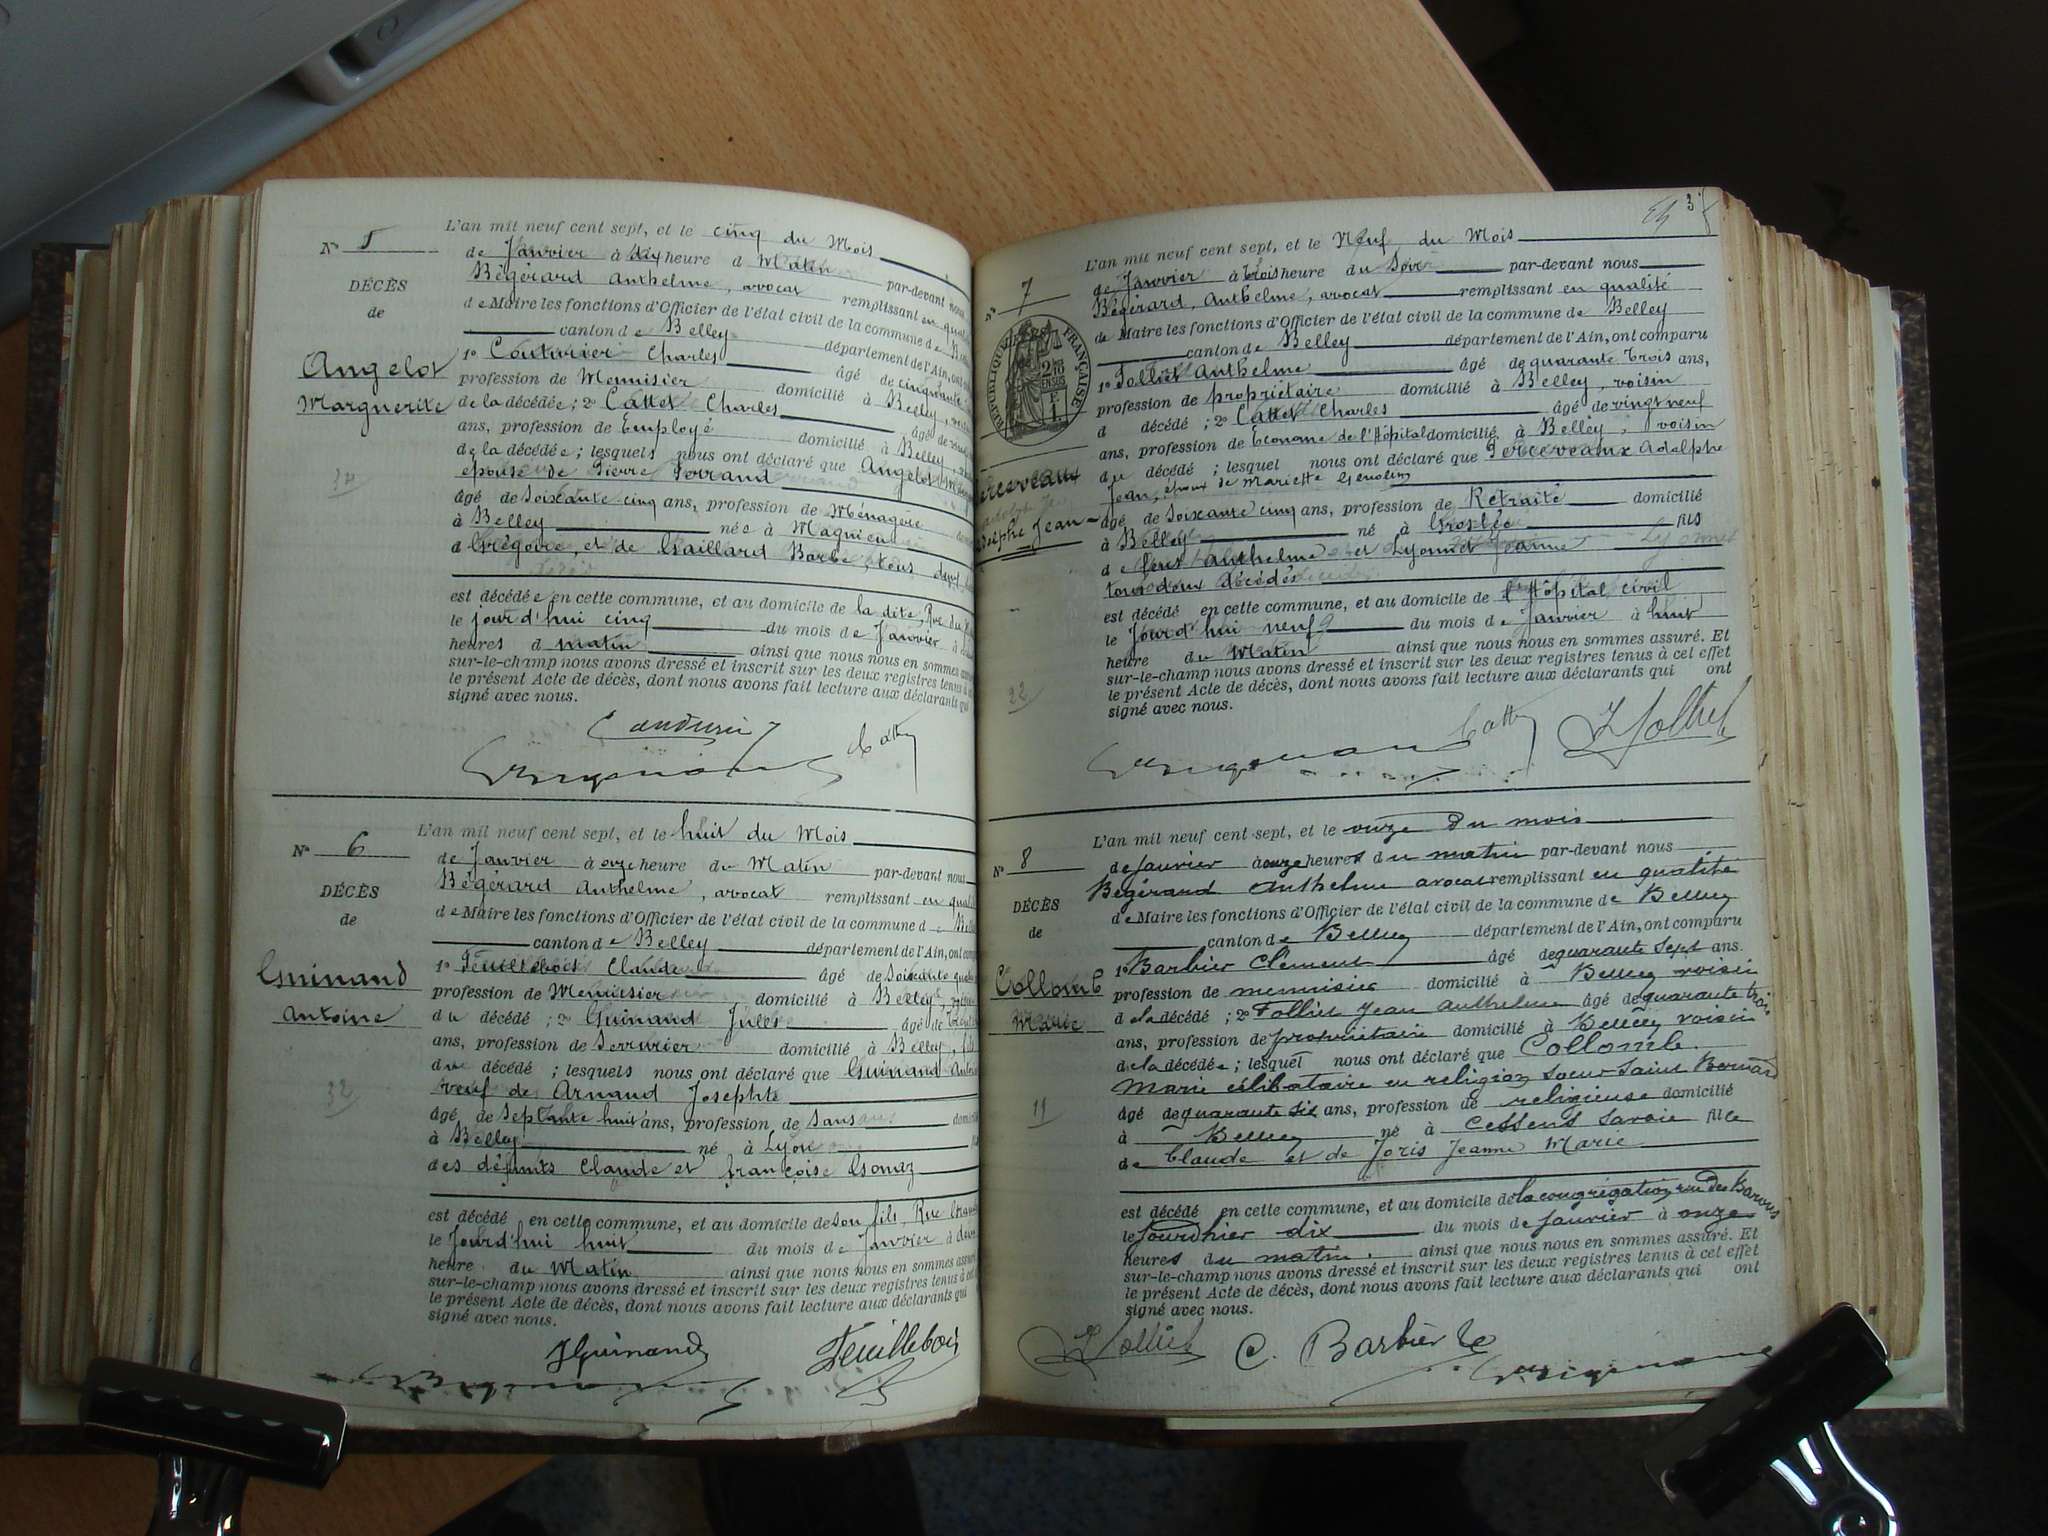 N° 5
DÉCÈS
de
Angelot
Marguerite
L'an mil neuf cent sept, et le cinq du Mois
de Janvier à dix heure d Matin par-devant nous
Bégérard Anthelme, avocat remplissant en
de Maire les fonctions d'Officier de l'état civil de la commune de
canton de Belley département de l'Ain, ont
1° Couturier Charles âgé de cinquante
profession de Menuisier domicilié à Belley,
de la décédée; 2° Cattet Charles âgé de
ans, profession de Employé domicilié à Belley,
de la décédée; lesquels nous ont déclaré que Angelot
épouse de Pierre Ferrand
âgé de Soixante cinq ans, profession de Ménagère
à Belley née à Magnieu
d Grégoire, et de Gaillard Barbe, tous deux
est décédée en cette commune, et au domicile de la dite, Rue
le jour d'hui cinq du mois de Janvier à
heures d matin ainsi que nous nous en sommes assuré
sur-le-champ nous avons dressé et inscrit sur les deux registres tenus à
le présent Acte de décès, dont nous avons fait lecture aux déclarants qui
signé avec nous.
N° 6
DÉCÈS
de
Guinand
Antoine
L'an mil neuf cent sept, et le huit du Mois
de Janvier à onze heure du Matin par-devant nous
Bégérard Anthelme, avocat remplissant en
de Maire les fonctions d'Officier de l'état civil de la commune de
canton de Belley département de l'Ain, ont
1° Feuillebois Claude âgé de Soixante
profession de Menuisier domicilié à Belley,
du décédé; 2° Guinand Jules âgé de
ans, profession de Serrurier domicilié à Belley, fils
du décédé; lesquels nous ont déclaré que Guinand
veuf de Arnaud Josephte
âgé de Septante huit ans, profession de Sans
à Belley né à Lyon
des défunts Claude et françoise Gonaz
est décédé en cette commune, et au domicile de Son fils, Rue
le Jourd'hui huit du mois de Janvier à
heure du Matin ainsi que nous nous en sommes assuré
sur-le-champ nous avons dressé et inscrit sur les deux registres tenus à
le présent Acte de décès, dont nous avons fait lecture aux déclarants qui
signé avec nous.
JGuinand Feuillebois
3
N° 7
RÉPUBLIQUE FRANÇAISE
L'an mil neuf cent sept, et le Neuf du Mois
de Janvier à trois heure du Soir par-devant nous
Bégérard, Anthelme, avocat remplissant en qualité
de Maire les fonctions d'Officier de l'état civil de la commune de Belley
canton de Belley département de l'Ain, ont comparu
1° Folliet Anthelme âgé de quarante trois ans,
profession de propriétaire domicilié à Belley, voisin
d décédé; 2° Cattet Charles âgé de vingt neuf
ans, profession de Econome de l'Hôpital domicilié à Belley, voisin
du décédé; lesquel nous ont déclaré que Perceveaux Adolphe
Jean, époux de Mariette
âgé de Soixante cinq ans, profession de Retraité domicilié
à Belley né à Groslée fils
de feus Anthelme et Lyonnet Jeanne
tous deux décédés
est décédé en cette commune, et au domicile de l'Hôpital civil
le Jourd'hui neuf du mois de Janvier à huit
heure du Matin ainsi que nous nous en sommes assuré. Et
sur-le-champ nous avons dressé et inscrit sur les deux registres tenus à cet effet
le présent Acte de décès, dont nous avons fait lecture aux déclarants qui ont
signé avec nous.
N° 8
DÉCÈS
de
Collomb
Marie
L'an mil neuf cent sept, et le onze du mois
de Janvier à onze heures du matin par-devant nous
Bégérard Anthelme avocat remplissant en qualité
de Maire les fonctions d'Officier de l'état civil de la commune de Belley
canton de Belley département de l'Ain, ont comparu
1° Barbier Clément âgé de quarante sept ans.
profession de menuisier domicilié à Belley voisin
de la décédé; 2° Folliet Jean Anthelme âgé de quarante trois
ans, profession de propriétaire domicilié à Belley voisin
de la décédée; lesquel nous ont déclaré que Collomb
Marie célibataire en religion soeur Saint Bernard
âgé de quarante six ans, profession de religieuse domicilié
à Belley né à Cessens Savoie fille
de Claude et de Joris Jeanne Marie
est décédé en cette commune, et au domicile de la congrégation rue des Barons
le Jourd'hier dix du mois de Janvier à onze
heures du matin. ainsi que nous nous en sommes assuré. Et
sur-le-champ nous avons dressé et inscrit sur les deux registres tenus à cet effet
le présent Acte de décès, dont nous avons fait lecture aux déclarants qui ont
signé avec nous.
C. Barbier